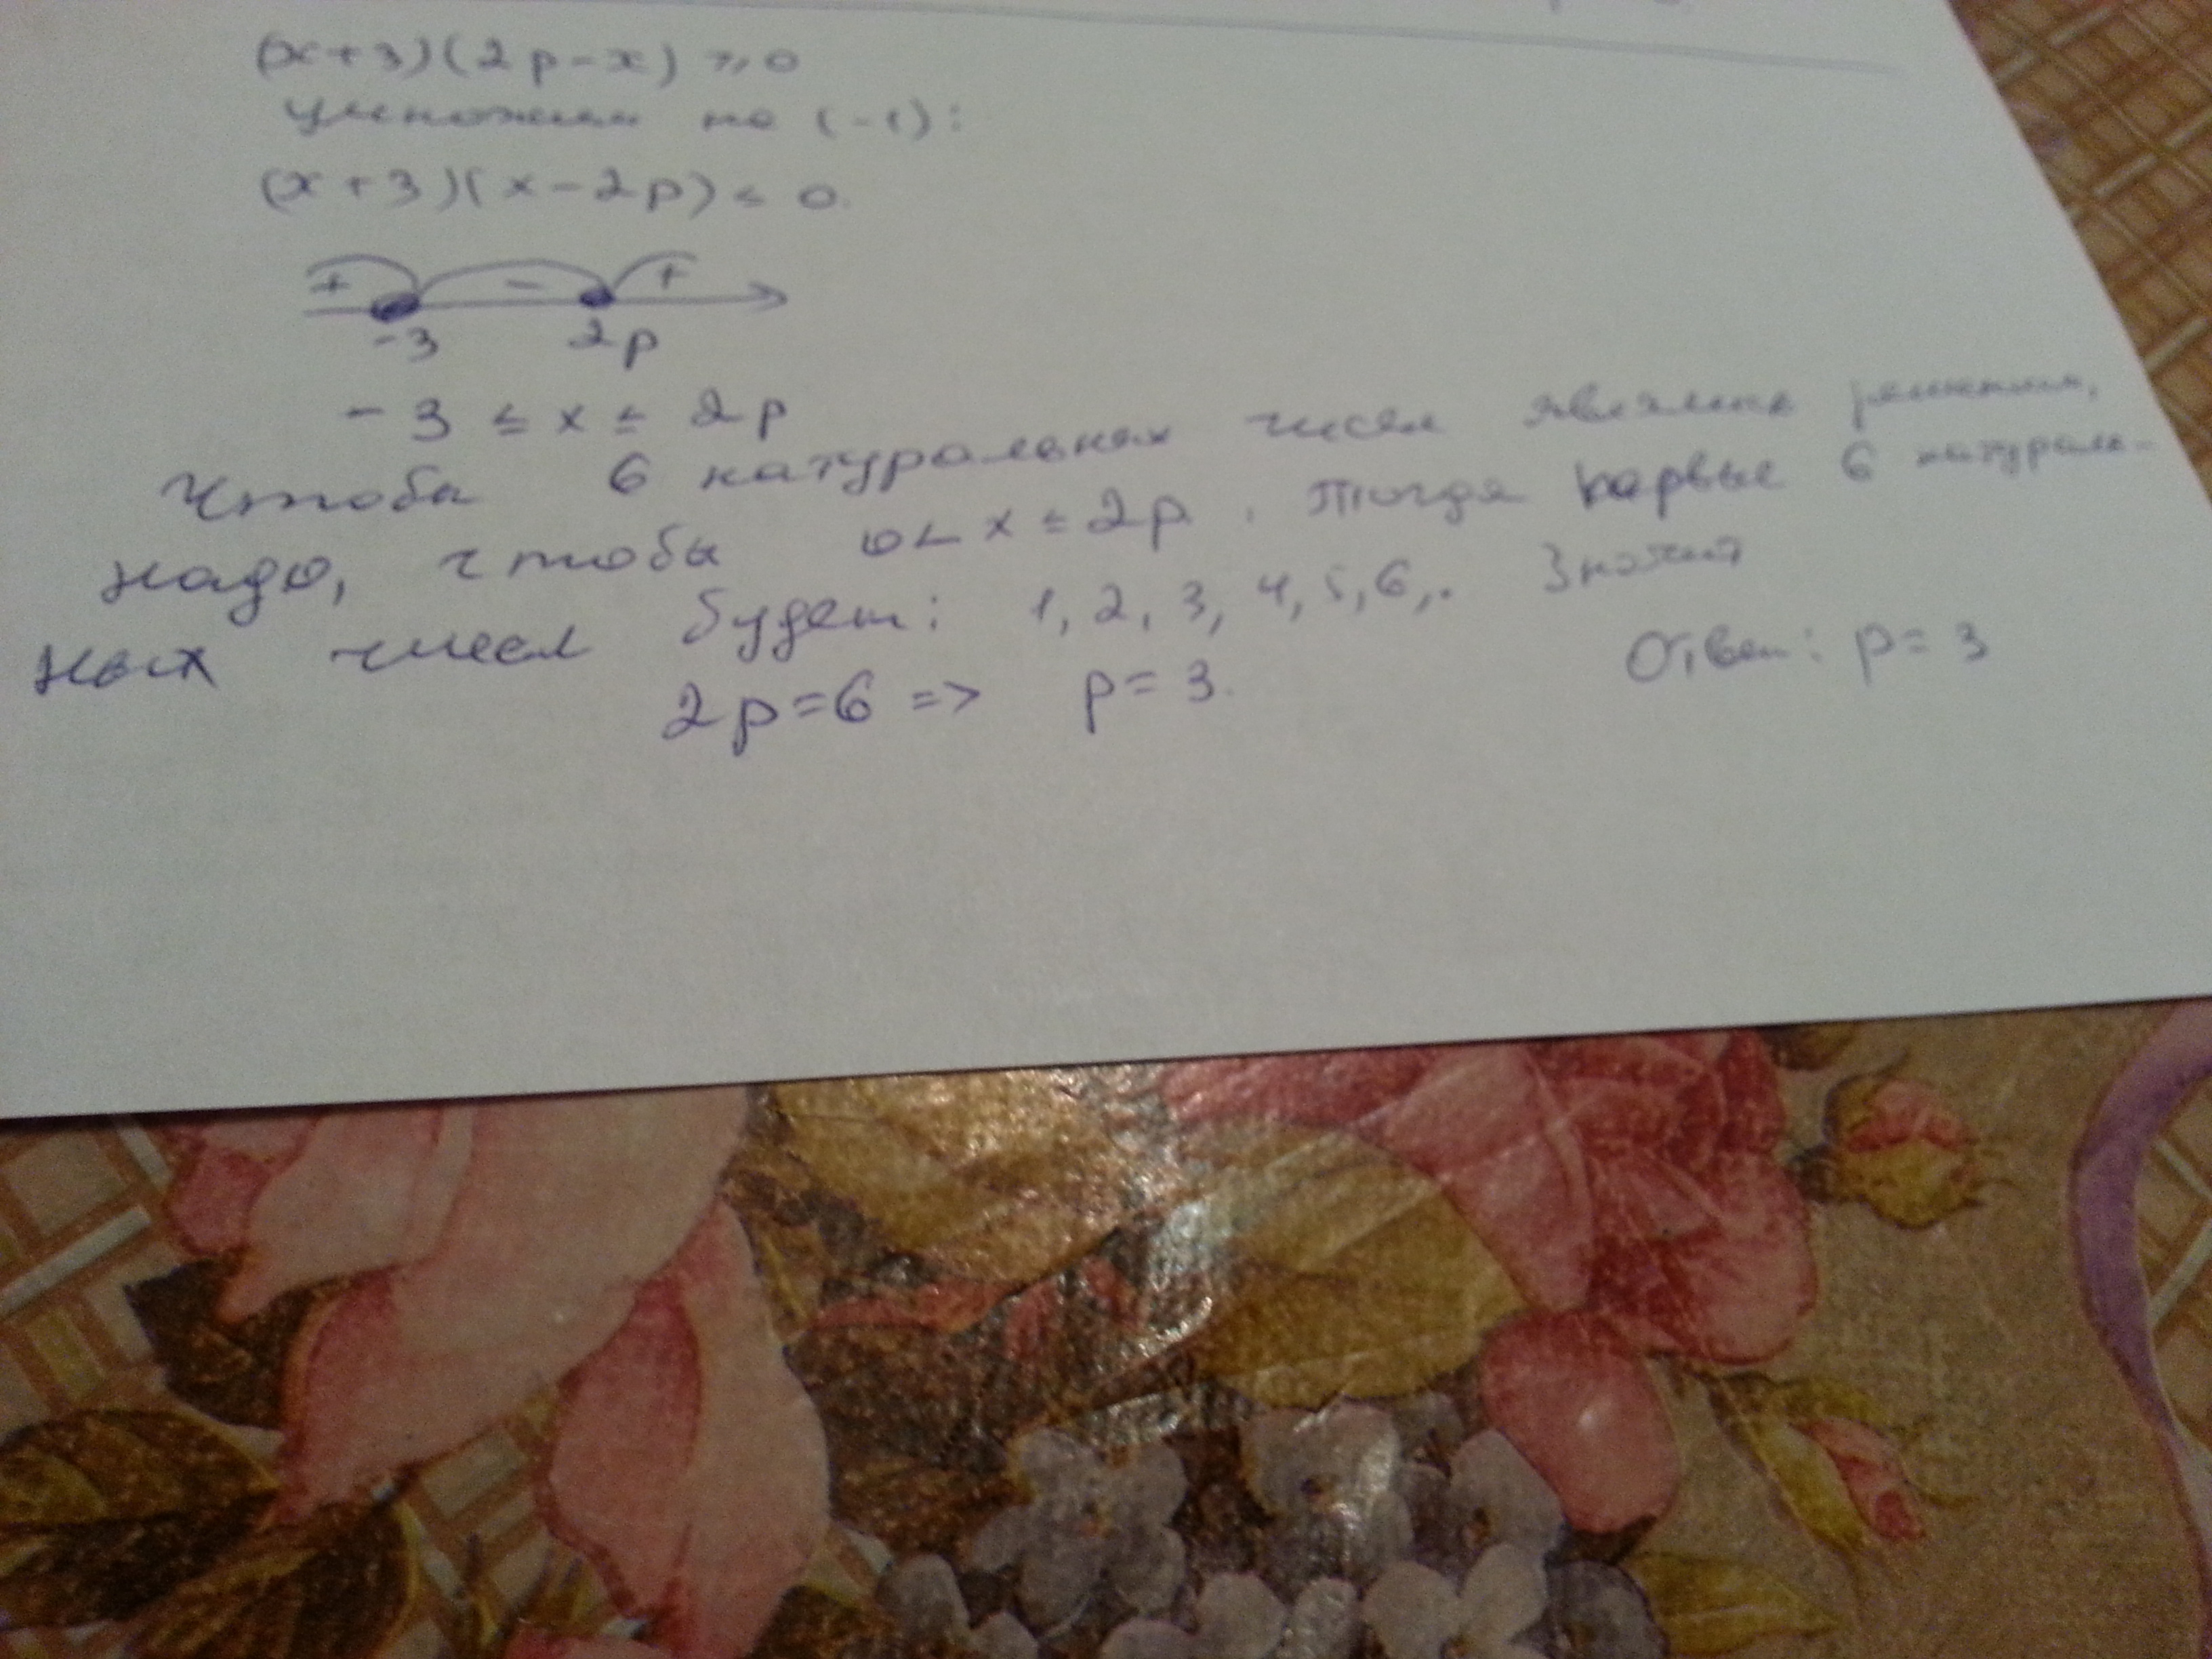 (x+3)(2p-x) ≥ 0
умножим на (-1):
(x+3)(x-2p) ≤ 0.
+ - +
-3 2p
-3 ≤ x ≤ 2p
Чтобы 6 натуральных чисел являлись решением,
надо, чтобы 0 < x ≤ 2p. Тогда первые 6 натураль-
ных чисел будет: 1, 2, 3, 4, 5, 6,. Значит
2p=6 => p=3.
Ответ: p=3